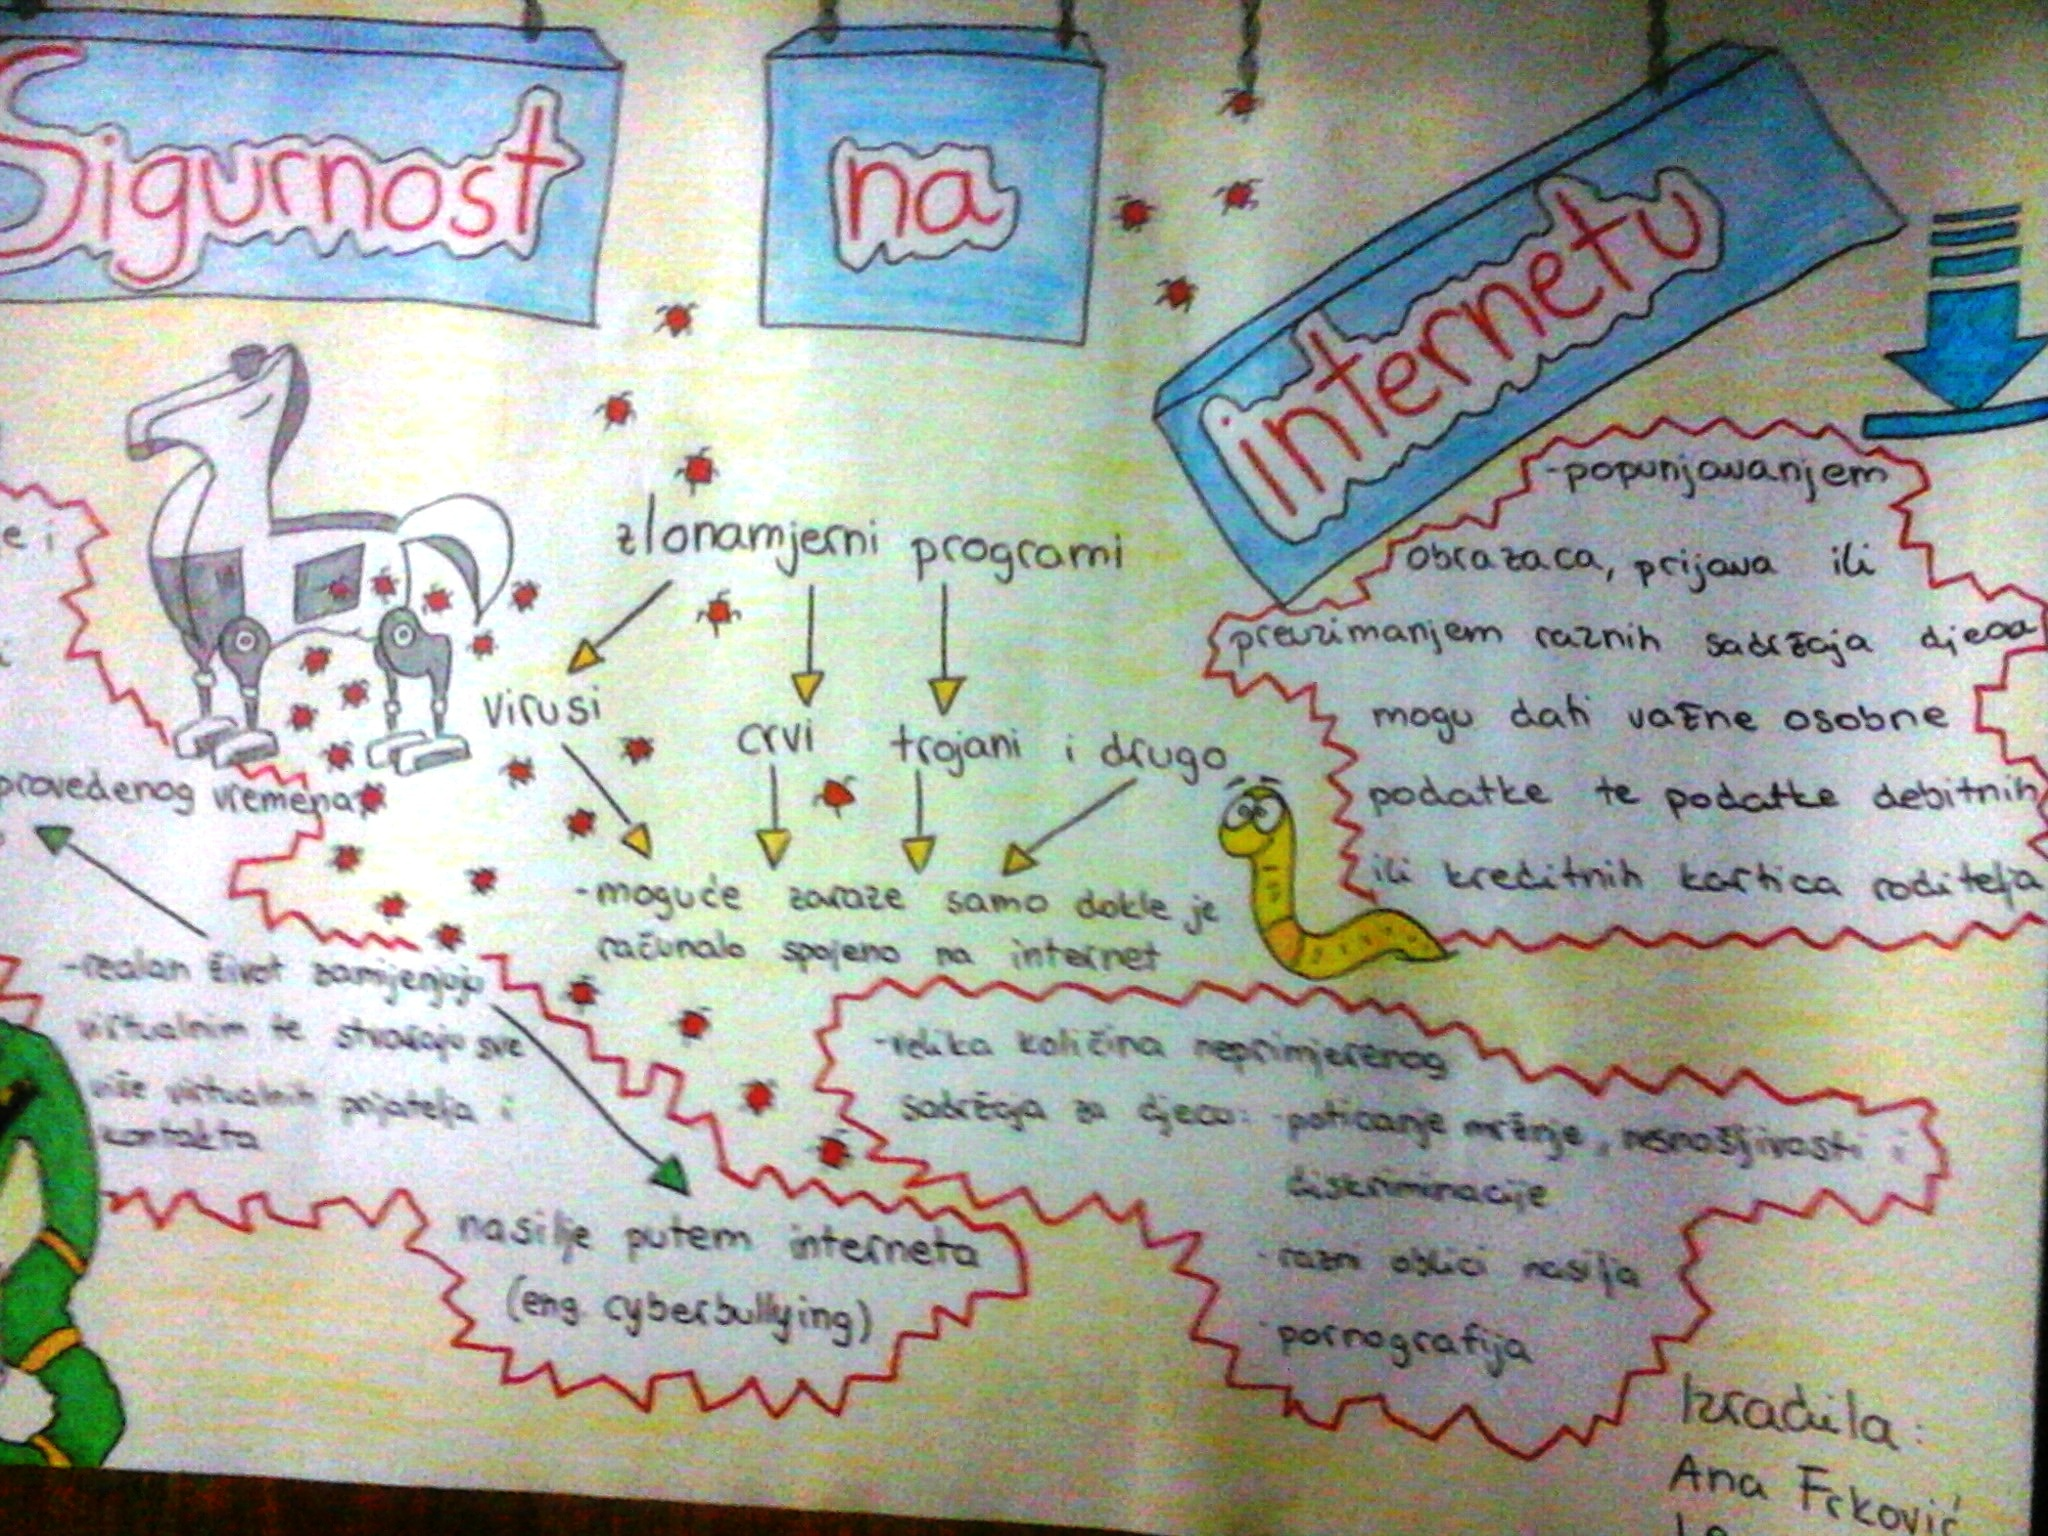 Sigurnost na internetu
zlonamjerni programi
virusi
crvi
trojani i drugo
-moguće zaraze samo dokle je
računalo spojeno na internet
-popunjavanjem
obrazaca, prijava ili
preuzimanjem raznih sadržaja djeca
mogu dati važne osobne
podatke te podatke debitnih
ili kreditnih kartica roditelja
e i
provedenog vremena
-realan život zamijenjuju
virtualnim te stvaraju sve
više virtualnih prijatelja i
kontakta
nasilje putem interneta
(eng. cyberbullying)
-velika količina neprimjerenog
sadržaja za djecu: -poticanje mržnje, nesnošljivosti i
diskriminacije
-razni oblici nasilja
-pornografija
Izradila:
Ana Frković